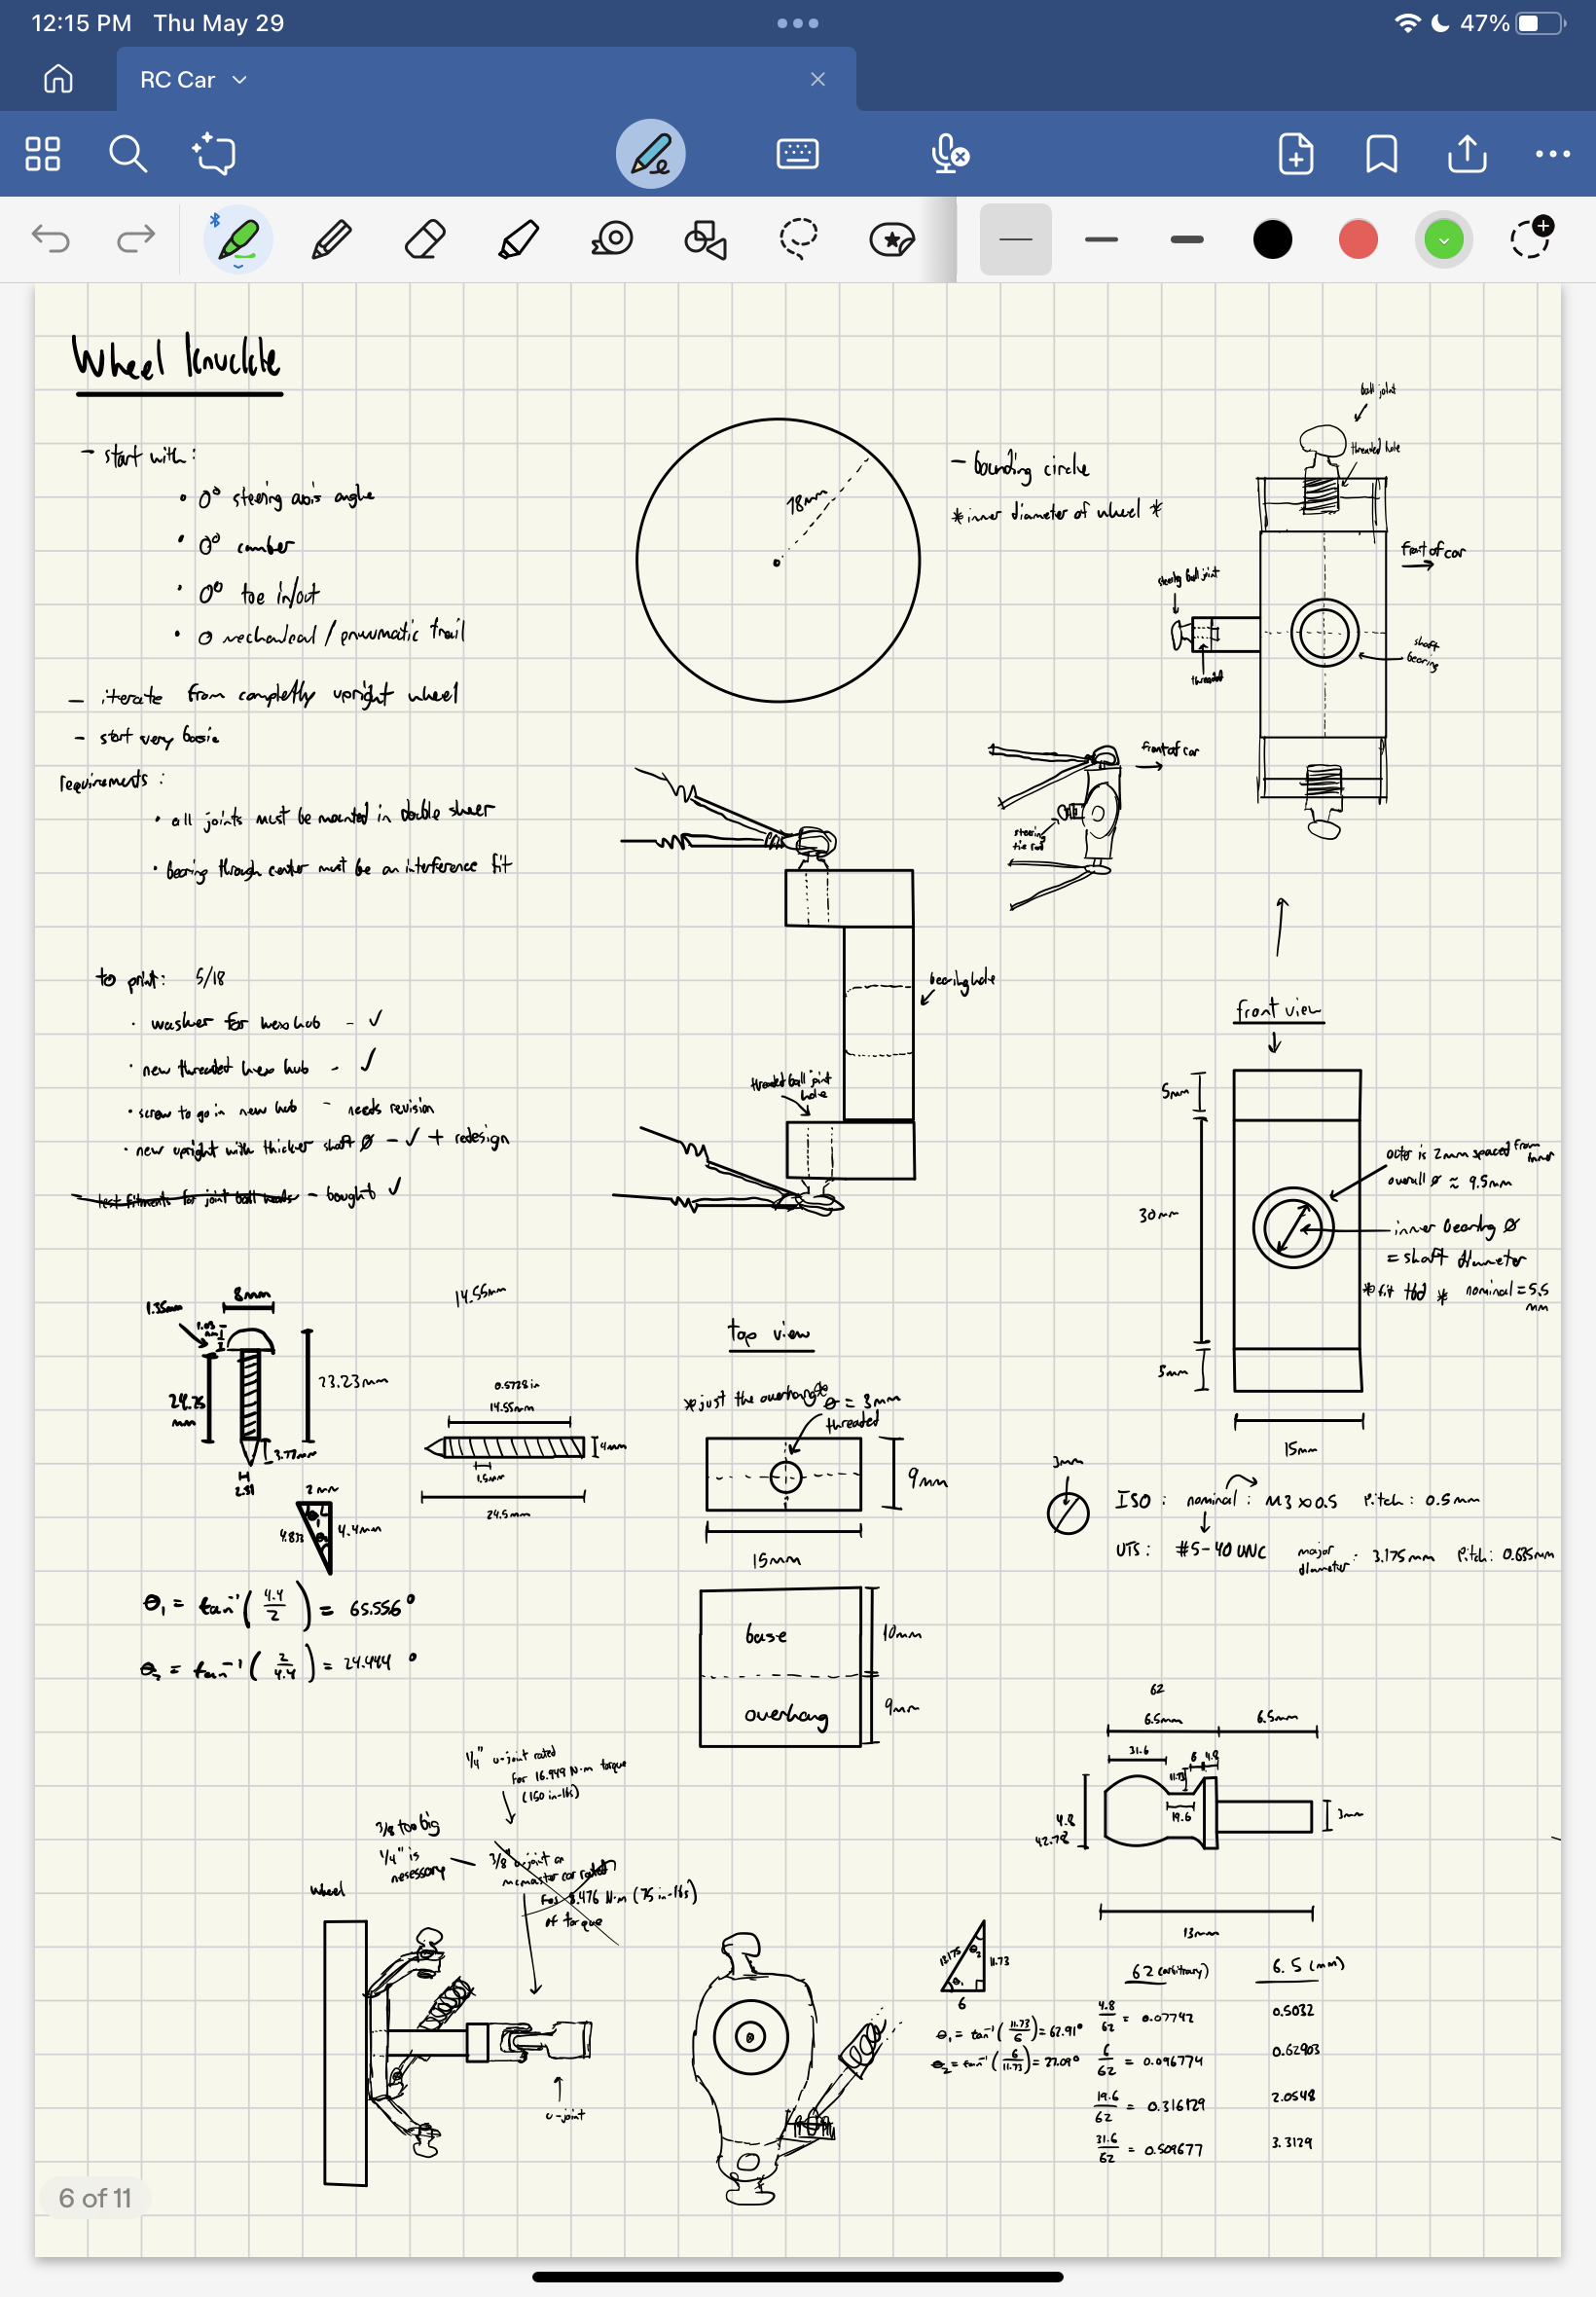 12:15 PM Thu May 29
47%
RC Car
Wheel Knuckle
- start with:
• 0° steering axis angle
• 0° camber
• 0° toe in/out
• 0 mechanical / pneumatic trail
- iterate from completly upright wheel
- start very basic
requirements:
• all joints must be mounted in double shear
• bearing through center must be an interference fit
to print: 5/18
• washer for hex hub - ✓
• new threaded hex hub - ✓
• screw to go in new hub - needs revision
• new upright with thicker shaft Ø - ✓ + redesign
- test fitments for joint ball heads - bought ✓
18mm
- bounding circle
*inner diameter of wheel *
ball joint
threaded hole
front of car
steering ball joint
threaded
shaft bearing
front of car
steering tie rod
bearing hole
threaded ball joint hole
front view
5mm
30mm
5mm
15mm
outer is 2mm spaced from inner
overall Ø ≈ 9.5mm
inner bearing Ø
= shaft diameter
*fit tbd * nominal = 5.5 mm
8mm
1.35mm
1.03 mm
24.25 mm
23.23mm
3.77mm
2.51
14.55mm
0.5728in
14.55mm
4mm
1.5mm
24.5mm
2mm
4.833
4.4mm
θ₁ = tan⁻¹(4.4/2) = 65.556°
θ₂ = tan⁻¹(2/4.4) = 24.444°
top view
*just the overhang*
Ø = 3mm
threaded
9mm
15mm
base
10mm
overhang
9mm
3mm
ISO: nominal: M3 x 0.5 Pitch: 0.5mm
UTS: #5-40 UNC major diameter: 3.175mm Pitch: 0.635mm
1/4" u-joint rated
for 16.949 N·m torque
(150 in-lbs)
3/8 too big
1/4" is
nesessary
3/8" u-joint on
mcmaster car rated
for 8.476 N·m (75 in-lbs)
of torque
wheel
u-joint
62
6.5mm
6.5mm
31.6
6
4.8
11.73
19.6
4.8
42.78
3mm
13mm
13.175
θ₂
11.73
θ₁
6
θ₁ = tan⁻¹(11.73/6) = 62.91°
θ₂ = tan⁻¹(6/11.73) = 27.09°
62 (arbitrary) 6.5 (mm)
4.8/62 = 0.07742 0.5032
6/62 = 0.096774 0.62903
19.6/62 = 0.316129 2.0548
31.6/62 = 0.509677 3.3129
6 of 11